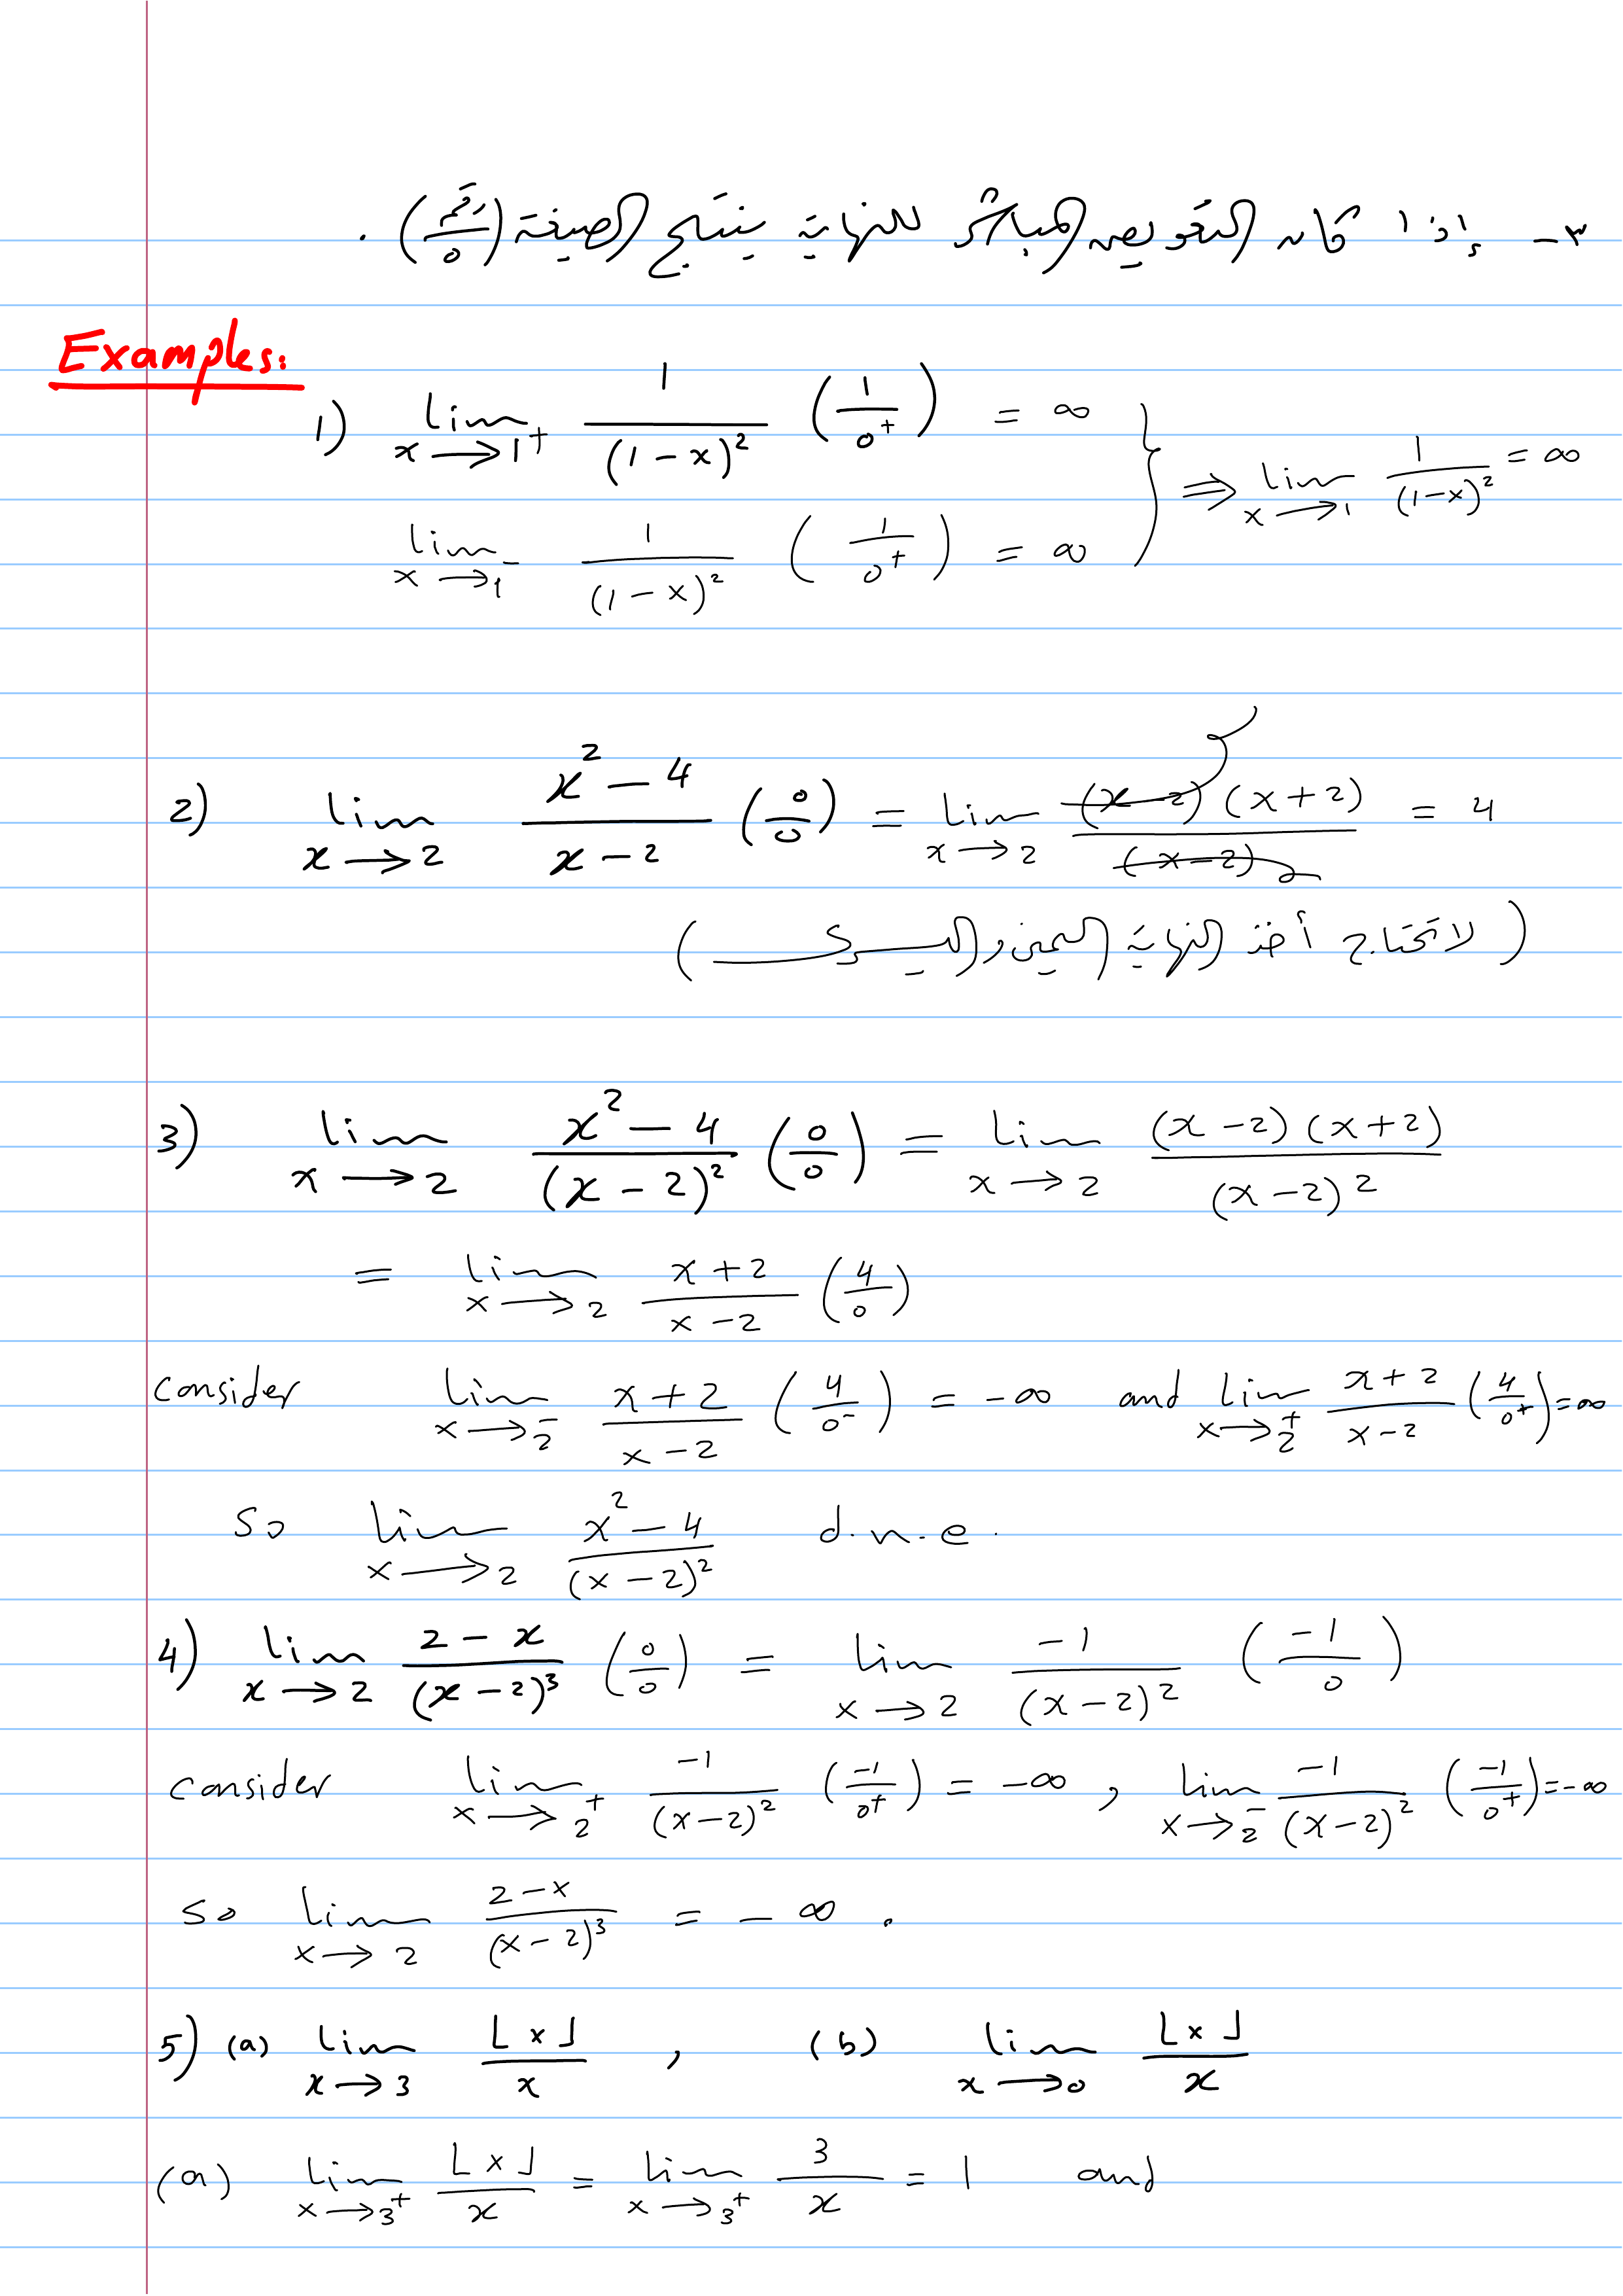 ٣- إذا كان التعويض المباشر للنهاية ينتج الصيغة (رقم/0) .
Examples:
1) lim x→1⁺ 1/(1-x)² (1/0⁺) = ∞
lim x→1⁻ 1/(1-x)² (1/0⁺) = ∞ } ⇒ lim x→1 1/(1-x)² = ∞
2) lim x→2 (x²-4)/(x-2) (0/0) = lim x→2 (x-2)(x+2)/(x-2) = 4
( لا تحتاج أخذ النهاية اليمين واليسرى )
3) lim x→2 (x²-4)/(x-2)² (0/0) = lim x→2 (x-2)(x+2)/(x-2)²
= lim x→2 (x+2)/(x-2) (4/0)
consider lim x→2⁻ (x+2)/(x-2) (4/0⁻) = -∞ and lim x→2⁺ (x+2)/(x-2) (4/0⁺) = ∞
so lim x→2 (x²-4)/(x-2)² d.n.e.
4) lim x→2 (2-x)/(x-2)³ (0/0) = lim x→2 -1/(x-2)² (-1/0)
consider lim x→2⁺ -1/(x-2)² (-1/0⁺) = -∞ , lim x→2⁻ -1/(x-2)² (-1/0⁺) = -∞
so lim x→2 (2-x)/(x-2)³ = -∞ .
5) (a) lim x→3 ⌊x⌋/x , (b) lim x→0 ⌊x⌋/x
(a) lim x→3⁺ ⌊x⌋/x = lim x→3⁺ 3/x = 1 and